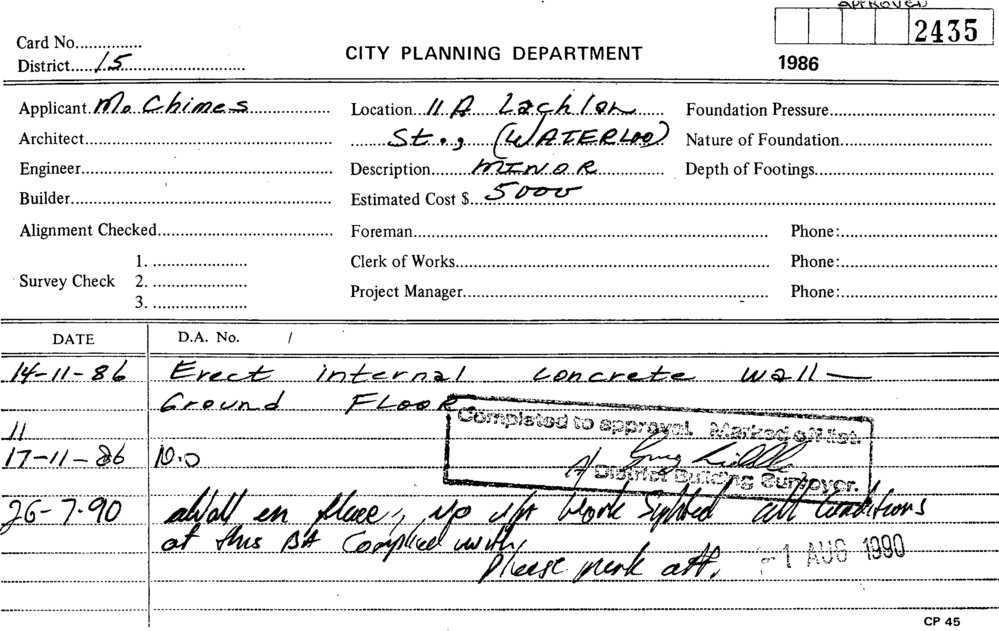 APPROVED
2435
Card No...............
District.....15
CITY PLANNING DEPARTMENT
1986
Applicant Mo Chimes
Location 11A Lachlan
Foundation Pressure
Architect
St., (WATERLOO)
Nature of Foundation
Engineer
Description MINOR
Depth of Footings
Builder
Estimated Cost $ 5000
Alignment Checked
Foreman
Phone:
Survey Check
1.
2.
3.
Clerk of Works
Phone:
Project Manager
Phone:
DATE
D.A. No. /
14-11-86 Erect internal concrete wall —
Ground FLOOR
Completed to approval. Marked off list.
11
17-11-86 N.O
A/ District Building Surveyor.
26-7-90 Wall in place, no work Sighted all Conditions
of this BA Complied with,
Please mark off.
-1 AUG 1990
CP 45